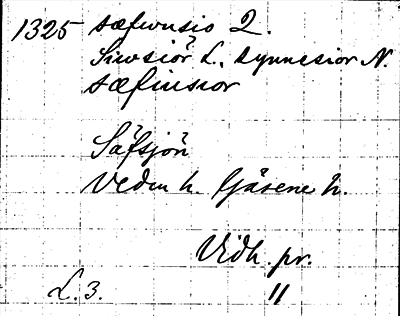 1325 sæfwusio 2.
Siwsiör L., synnesior N.
sæfiusior
Säfsjön
Vedens h. Gäsene h.
Vidh. pr.
L. 3. "